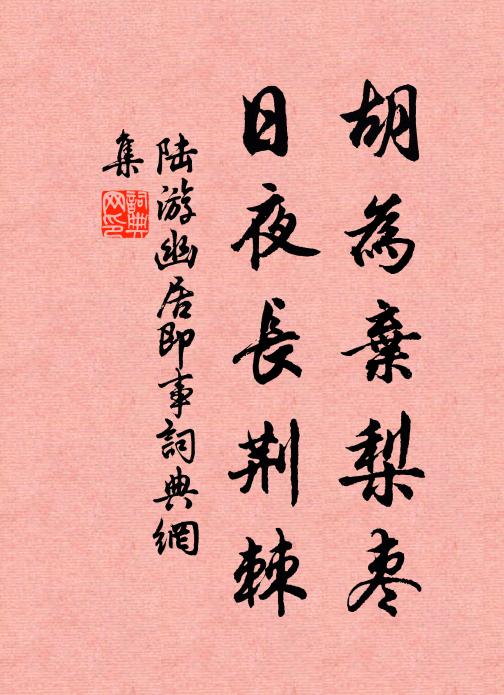 胡為棄梨棗
日夜長荆棘
陆游幽居即事詞典網
集
詞典
网印